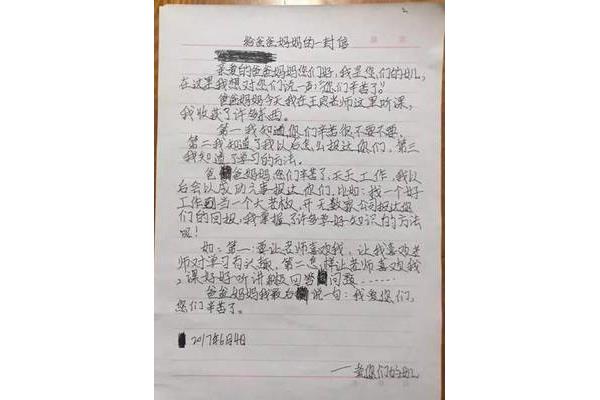 给爸爸妈妈的一封信
亲爱的爸爸妈妈您们好,我是您们的
在这里我想对您们说一声:"您们辛苦了"。
爸爸妈妈今天我在王良老师这里听课,
我收获了许多东西。
第一我知道您们辛苦很不要不要,
第二我知道了我以后怎么报达您们,第三
我知道了学习的方法。
爸妈妈您们辛苦了,天天工作,我以
后会以成功元事报达您们,比如:找一个好
工作当一个大老板,开无数家公司报达您
们的回报,我掌握了许多学好知识的方法
呢!
如:第一:要让老师喜欢我,让我喜欢老
师对学习有兴趣,第二怎样让老师喜欢我,
课好好听讲积极回答问题……
爸爸妈妈我最后说一句:我爱您们,
您们辛苦了。
2017年6月4日
一 您们的